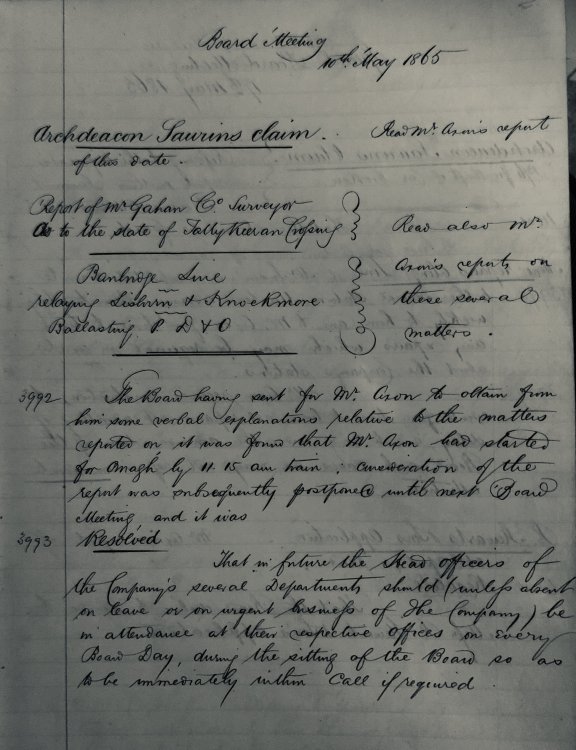 Board Meeting
10th May 1865
Archdeacon Saurins claim. Read Mr. Axon's report
of this date.
Report of Mr Gahan Co Surveyor
as to the state of Tattykeeran Crossing
Read also Mr.
Axon's reports on
these several
matters.
Banbridge Line
relaying Lisburn & Knockmore
Ballasting P D & O
3992 The Board having sent for Mr. Axon to obtain from
him some verbal explanations relative to the matters
reported on it was found that Mr. Axon had started
for Omagh by 11.15 am train; consideration of the
report was subsequently postponed until next Board
Meeting and it was
3993 Resolved
That in future the Head officers of
the Company's several Departments should (unless absent
on leave or on urgent business of the Company) be
in attendance at their respective offices on every
Board Day, during the sitting of the Board so as
to be immediately within call if required.